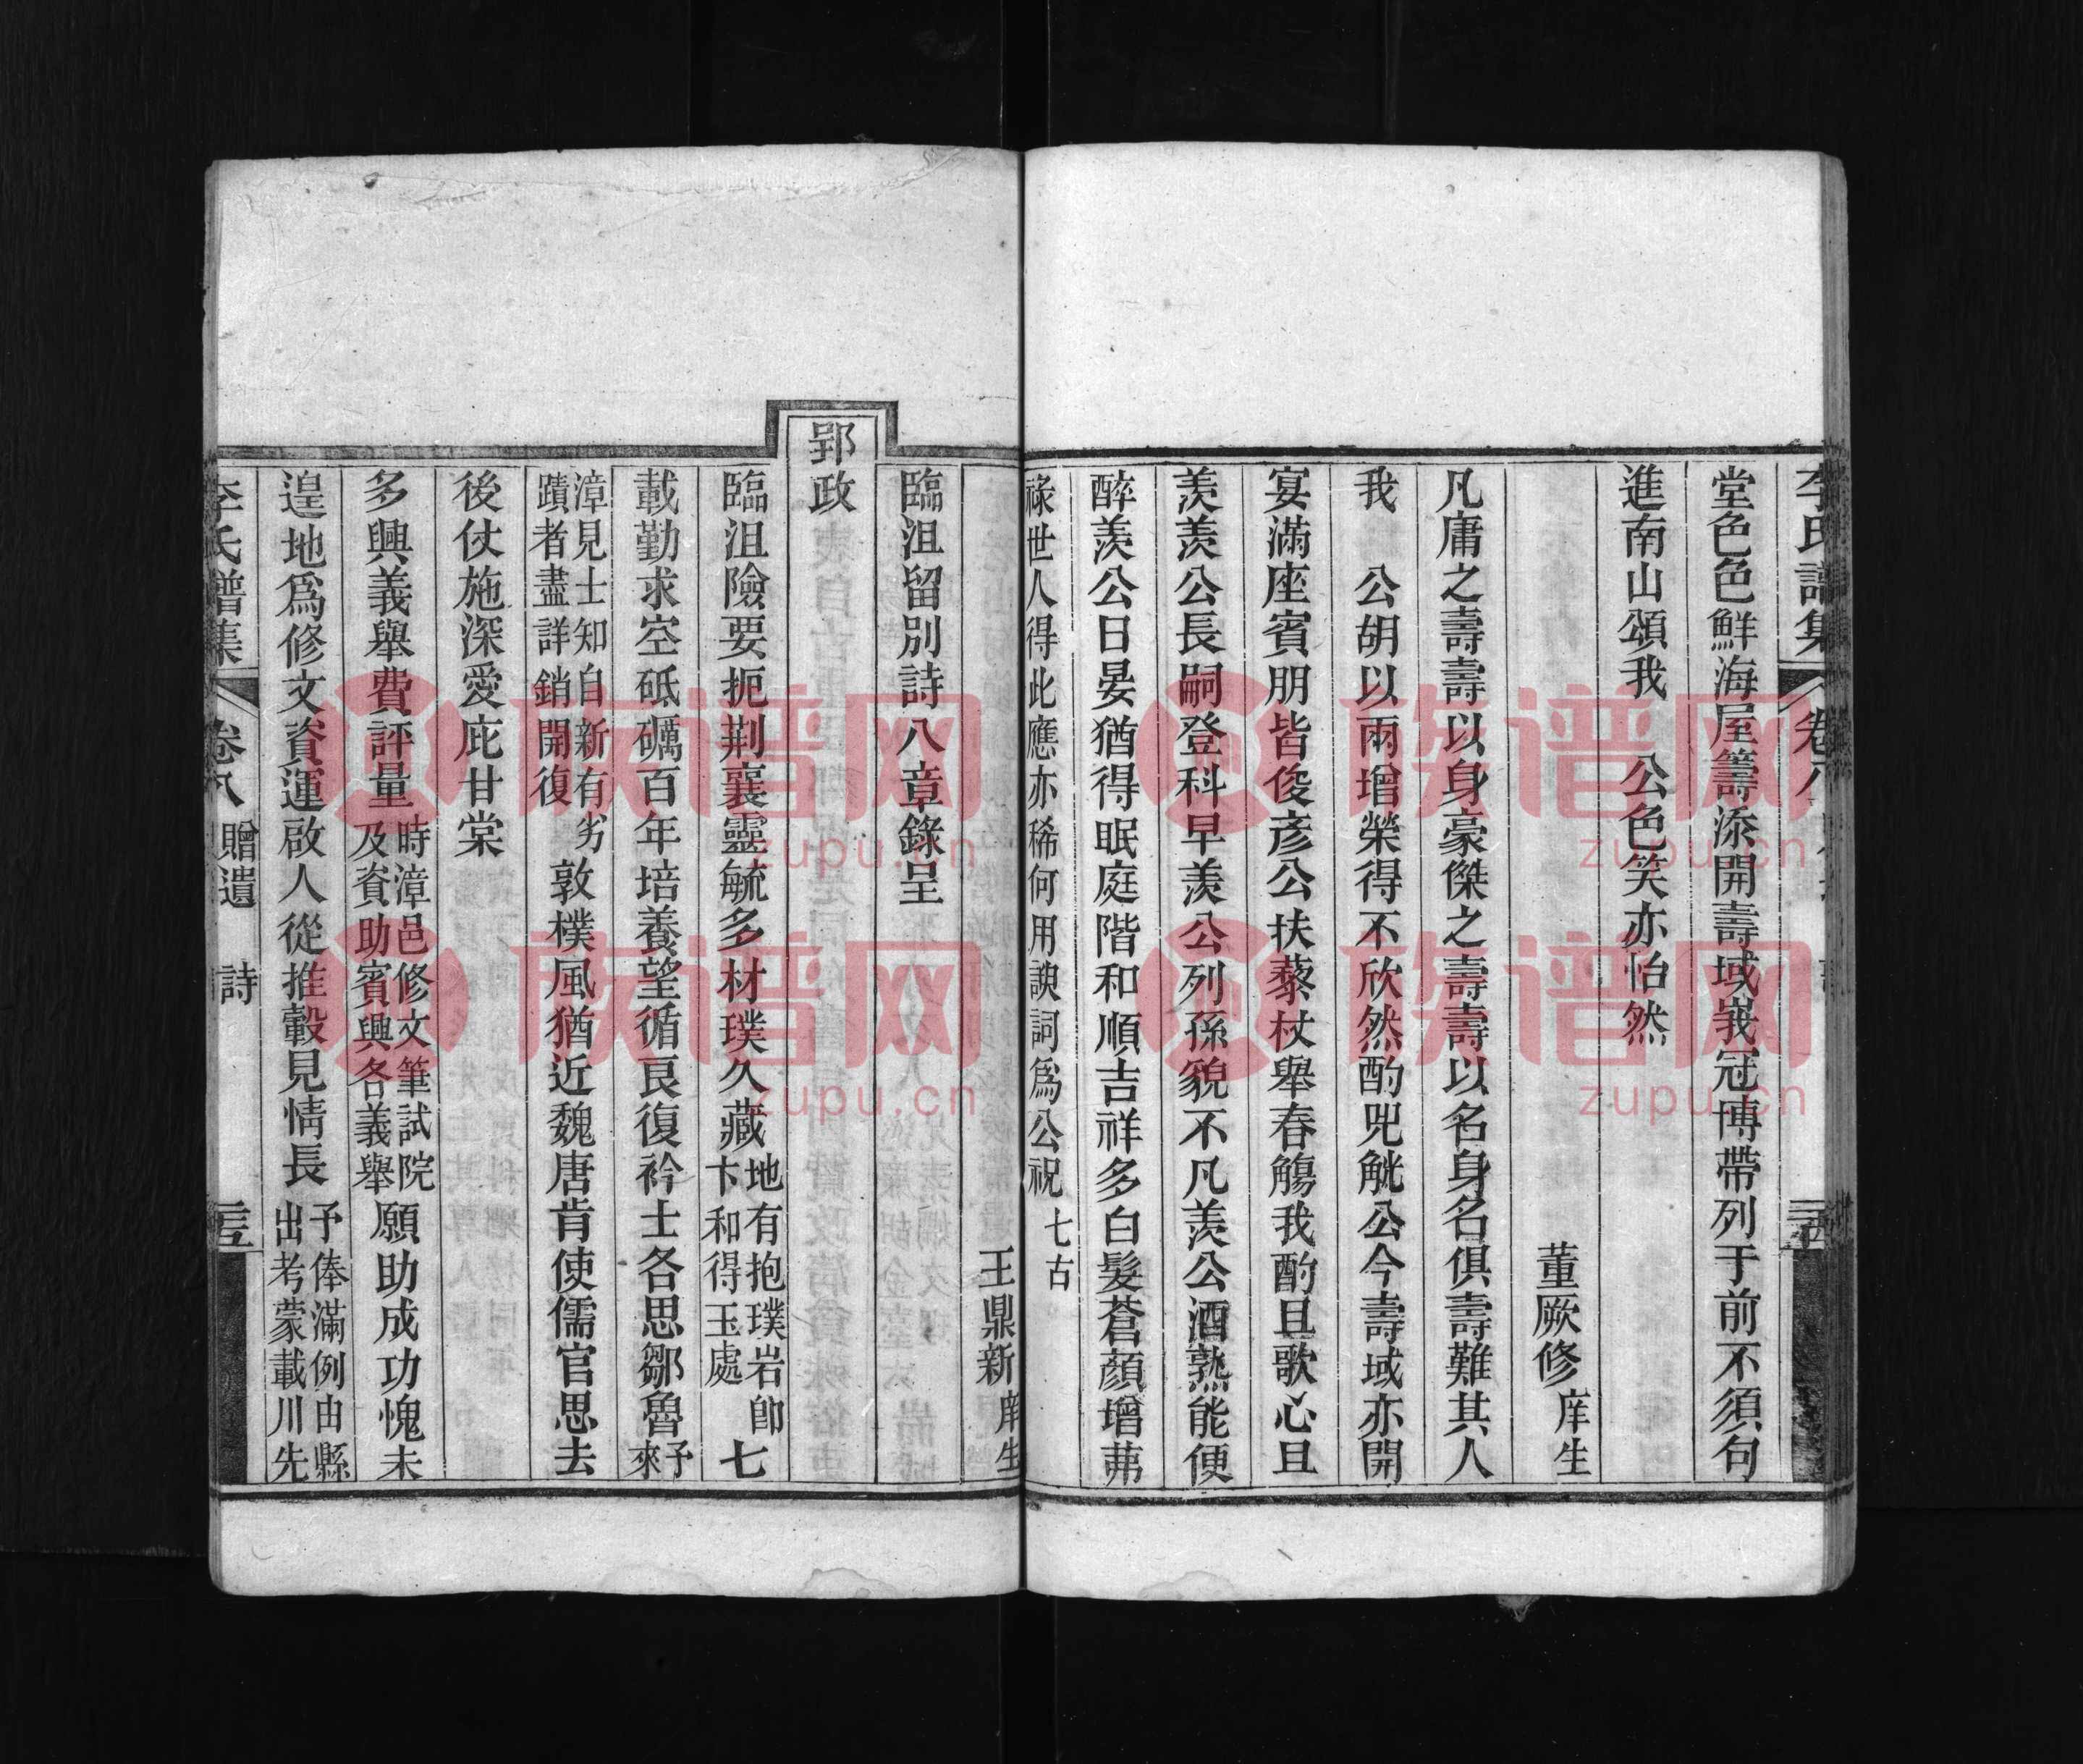 李氏譜集 卷八
堂色色鮮海屋籌添開壽域峩冠博帶列于前不須句
進南山頌我 公色笑亦怡然
董厥修 庠生
凡庸之壽壽以身豪傑之壽壽以名身名俱壽難其人
我 公胡以兩增榮得不欣然酌兕觥公今壽域亦開
宴滿座賓朋皆俊彥公扶藜杖舉春觴我酌且歌心且
羨羨公長嗣登科早羨公列孫貌不凡羨公酒熟能便
醉羨公日晏猶得眠庭階和順吉祥多白髮蒼顏增茀
祿世人得此應亦稀何用諛詞為公祝 七古
王鼎新 庠生
臨沮留別詩八章錄呈
郢政
臨沮險要扼荆襄靈毓多材璞久藏 地有抱璞岩卽卞和得玉處 七
載勤求空砥礪百年培養望循良復衿士各思鄒魯 予來
漳見士知自新有劣蹟者盡詳銷開復 敦樸風猶近魏唐肯使儒官思去
後仗施深愛庇甘棠
多興義舉費評量 時漳邑修文筆試院及資助賓興各義舉 願助成功愧未
遑地為修文資運啟人從推轂見情長 予俸滿例由縣出考蒙載川先
李氏譜集 卷八 贈遺 詩 三五
族谱网
zupu.cn
族谱网
zupu.cn
族谱网
zupu.cn
族谱网
zupu.cn